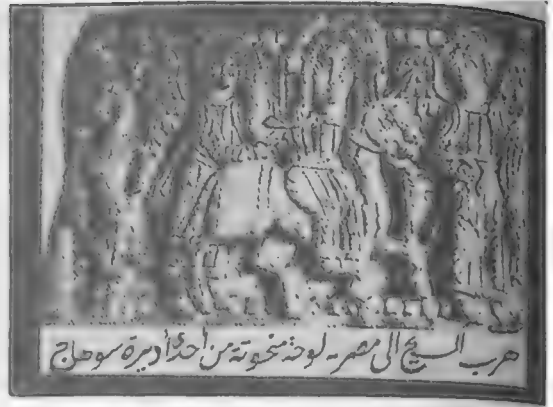 هرب المسيح الى مصر ـ لوحة منحوتة من أحد أديرة سوهاج